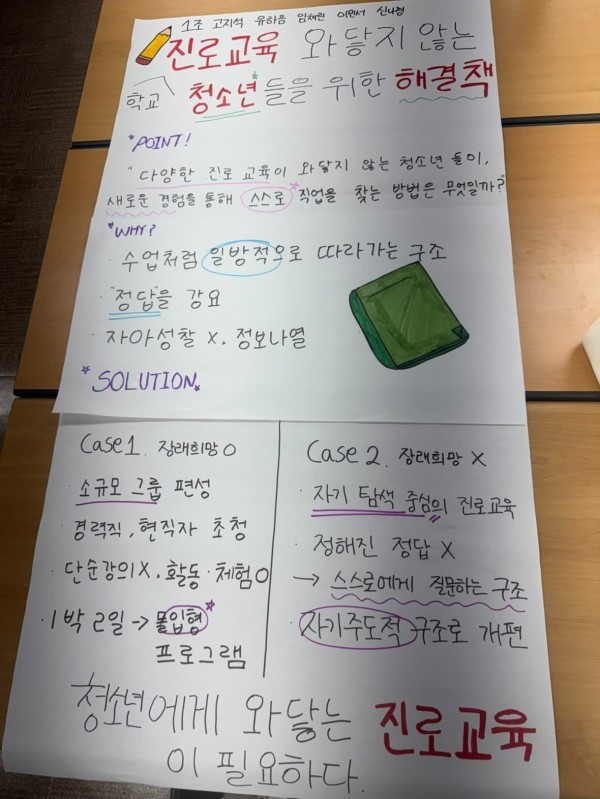 1조 고지석 유하음 임채린 이민서 신나경
진로교육 와닿지 않는
학교 청소년들을 위한 해결책
*POINT!
"다양한 진로 교육이 와닿지 않는 청소년 들이,
새로운 경험을 통해 스스로 직업을 찾는 방법은 무엇일까?"
*WHY?
· 수업처럼 일방적으로 따라가는 구조
· "정답"을 강요
· 자아성찰 X. 정보나열
*SOLUTION*
Case 1. 장래희망 O
· 소규모 그룹 편성
· 경력직, 현직자 초청
· 단순강의 X. 활동·체험 O
· 1박 2일 → 몰입형
프로그램
Case 2. 장래희망 X
· 자기 탐색 중심의 진로교육
· 정해진 정답 X
→ 스스로에게 질문하는 구조
· 자기주도적 구조로 개편
청소년에게 와닿는 진로교육
이 필요하다.